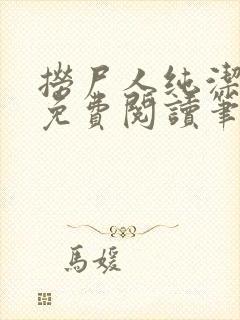 撈尸人純潔
免費閱讀筆
馬媛